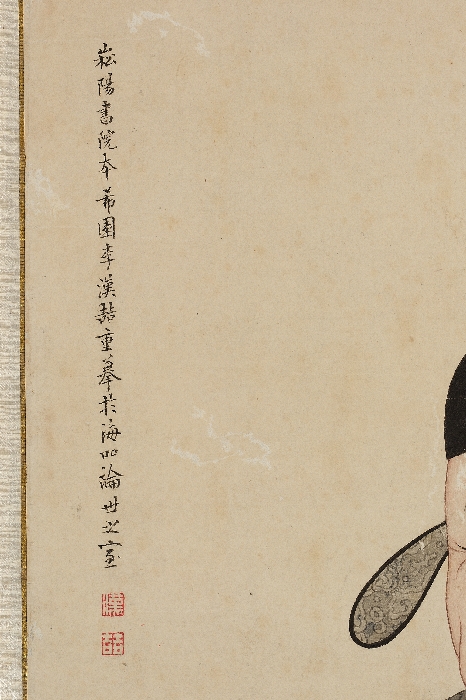 崧陽書院本希園李漢喆重摹於海州論世之室